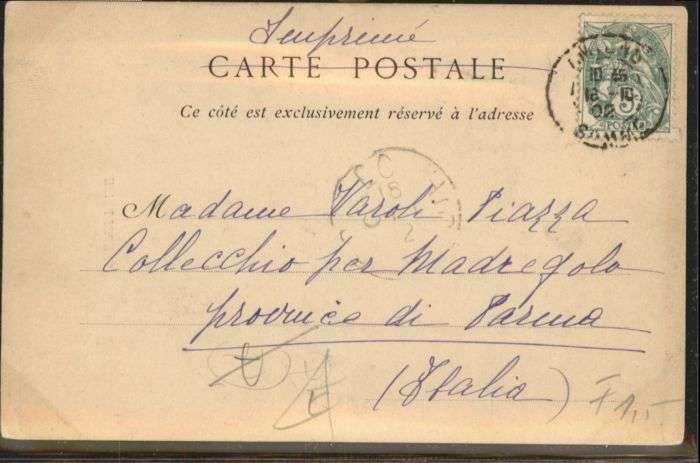 Imprimé
CARTE POSTALE
Ce côté est exclusivement réservé à l'adresse
10 45
16 10
02
SOMME
5
Madame Varoli Piazza
Collecchio per Madregolo
provincia di Parma
(Italia)